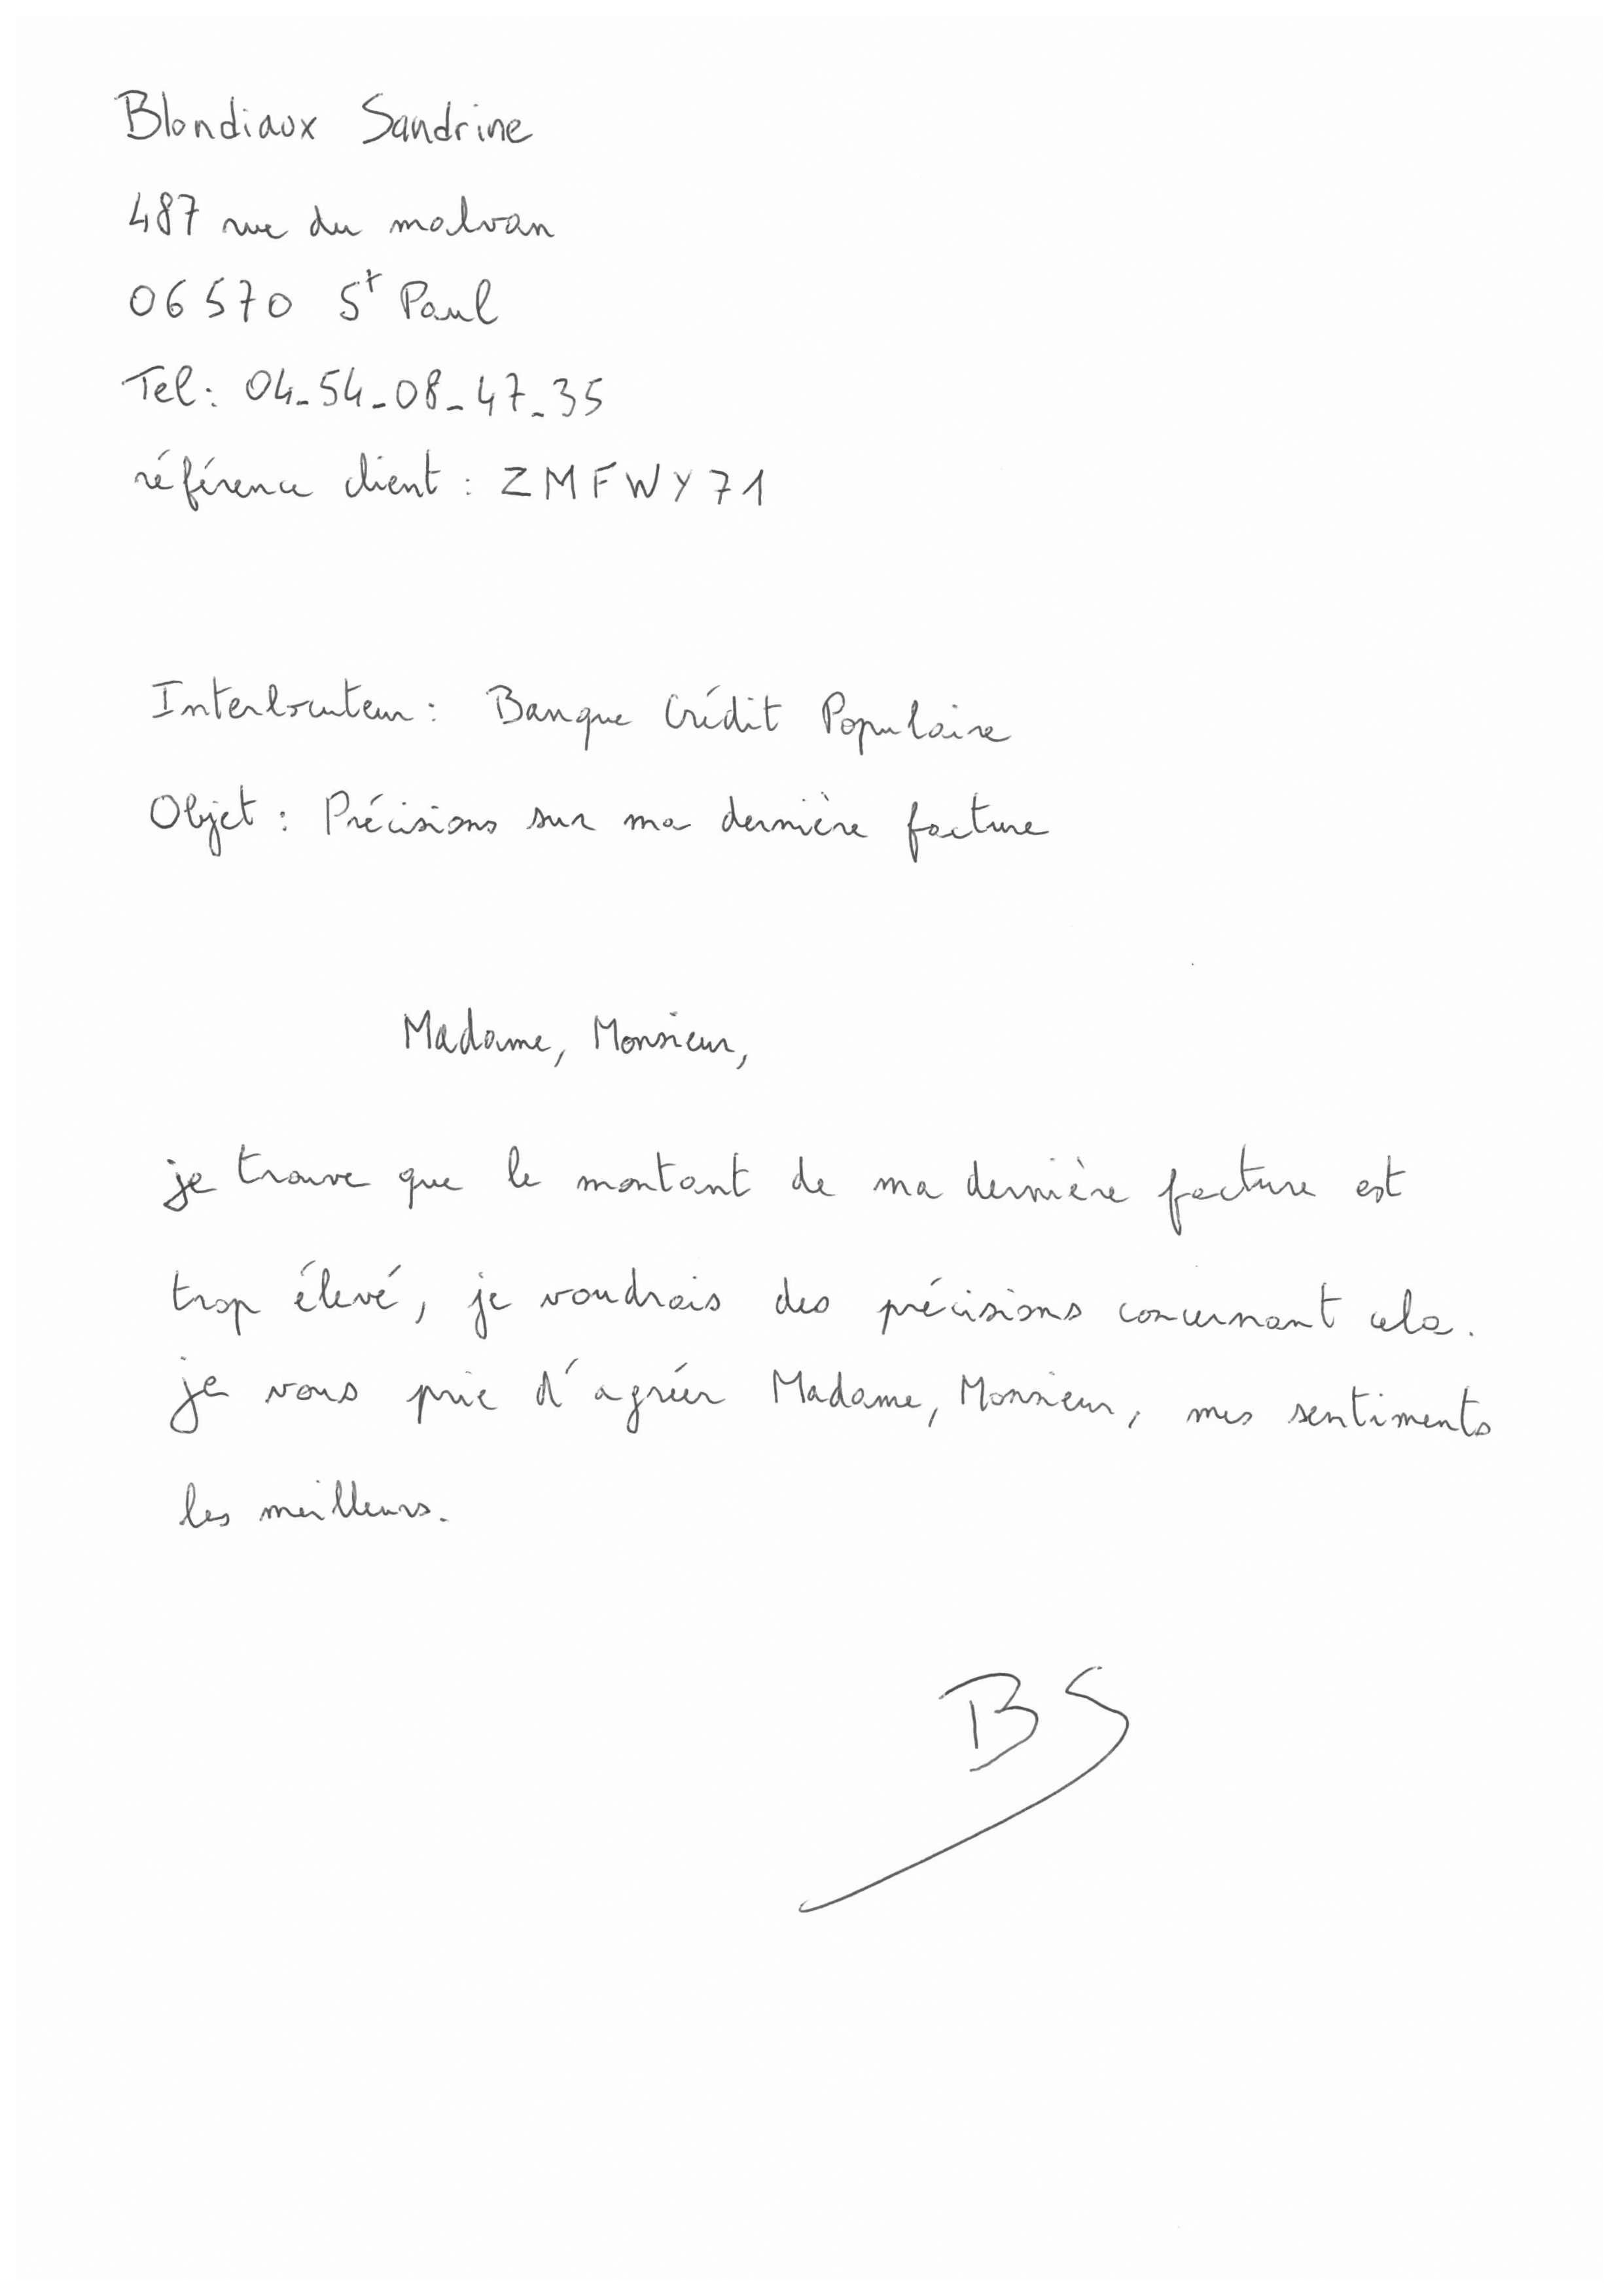 Blondiaux Sandrine
487 rue du malvan
06570 St Paul
Tel: 04_54_08_47_35
référence client : ZMFWY71
Interlocuteur : Banque Crédit Populaire
Objet : Précisions sur ma dernière facture
Madame, Monsieur,
je trouve que le montant de ma dernière facture est
trop élevé, je voudrais des précisions concernant cela.
je vous prie d'agréer Madame, Monsieur, mes sentiments
les meilleurs.
BS